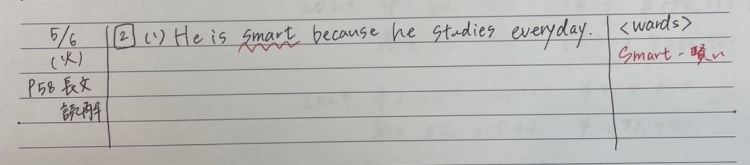 5/6 [2] (1) He is smart because he studies everyday. <wards>
(火) smart - 賢い
P58 長文
読解